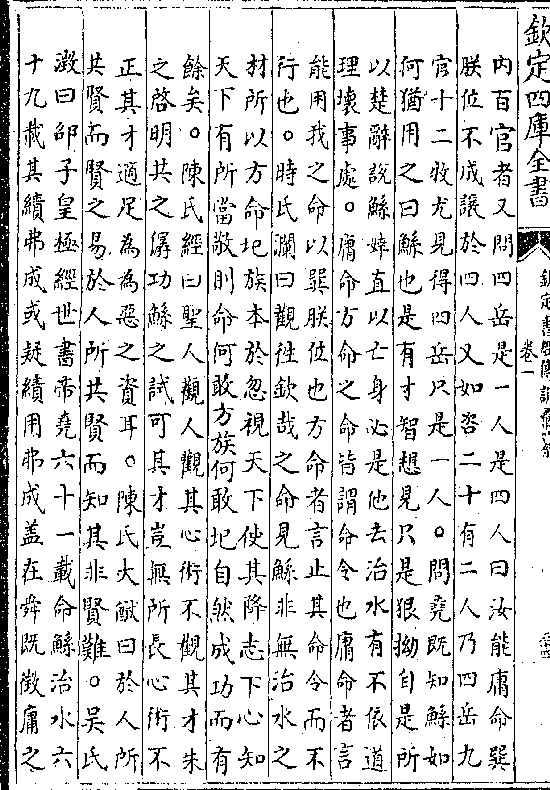 欽定四庫全書
卷一
內百官者又問四岳是一人是四人曰汝能庸命巽
朕位不成讓於四人又如咨二十有二人乃四岳九
官十二牧尤見得四岳只是一人○問堯既知鯀如
何猶用之曰鯀也是有才智想見只是狠拗自是所
以楚辭說鯀婞直以亡身必是他去治水有不依道
理壞事處○庸命方命之命皆謂命令也庸命者言
能用我之命以巽朕位也方命者言止其命令而不
行也○時氏瀾曰觀往欽哉之命見鯀非無治水之
材所以方命圮族本於忽視天下使其降志下心知
天下有所當敬則命何敢方族何敢圮自然成功而有
餘矣○陳氏經曰聖人觀人觀其心術不觀其才朱
之啓明共之㑛功鯀之試可其才豈無所長心術不
正其才適足為為惡之資耳○陳氏大猷曰於人所
共賢而賢之易於人所共賢而知其非賢難○吳氏
澂曰邵子皇極經世書帝堯六十一載命鯀治水六
十九載其績弗成或疑績用弗成盖在舜既徵庸之